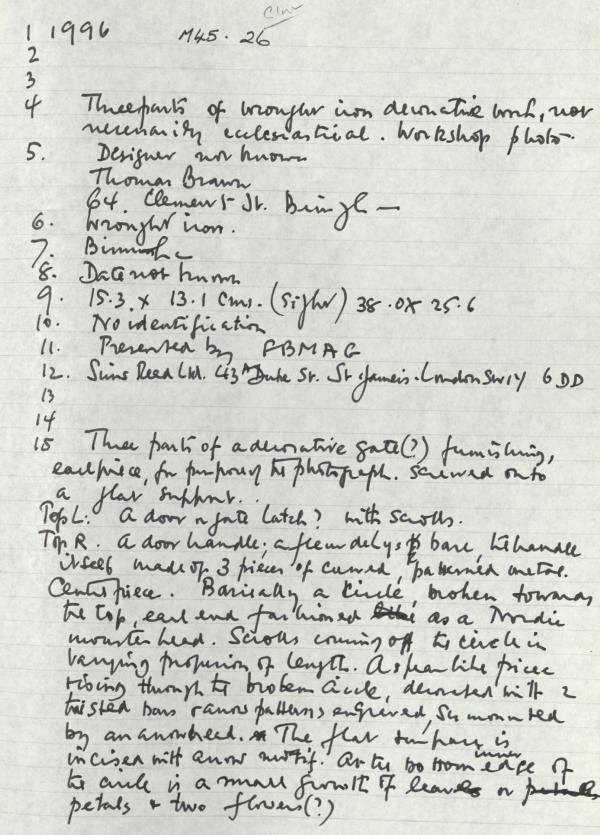 1 1996 M45.26
2
3
4 Three parts of wrought iron decorative work, not
necessarily ecclesiastical. Workshop photo.
5. Designer not known
Thomas Brawn
64. Clement St. Birmgh
6. Wrought iron.
7.
8. Date not known
9. 15.3. x 13.1 cms. (sight) 38.0 x 25.6
10. No identification
11. Presented by FBMAG
12. Sims Reed Ltd. 43A Duke St. St James's. London SW1Y 6DD
13
14
15 Three parts of a decorative gate(?) furnishing,
each piece, for purpose of the photograph. screwed onto
a flat support..
Top L: A door or gate latch? with scrolls.
Top R. A door handle; a fleur de lys base, the handle
itself made of 3 pieces of curved, patterned metal.
Centre piece. Basically a circle, broken towards
the top, each end fashioned as a Nordic
monster head. Scrolls coming off the circle in
varying profusion of length. A spear like piece
rising through the broken circle, decorated with 2
twisted bars & arrow patterns engraved, surmounted
by an arrowhead. The flat surface is
incised with arrow motif. At the bottom inner edge of
the circle is a small growth of leaves or
petals & two flowers(?)